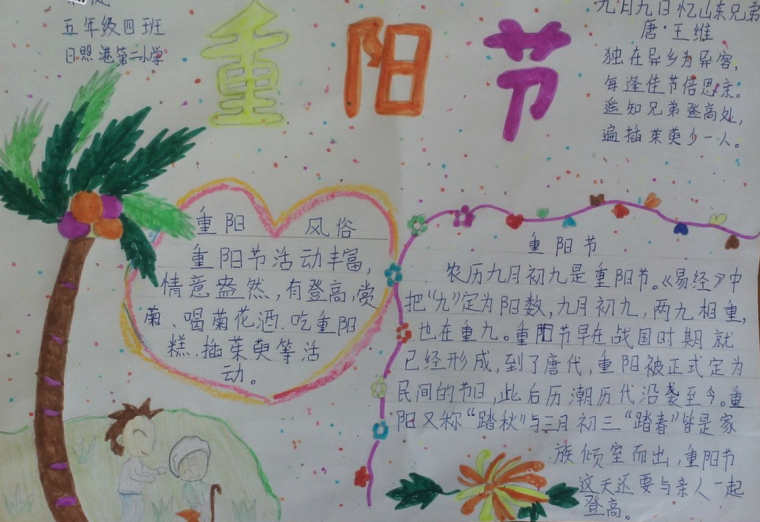 五年级四班
日照港第二小学
重阳节
九月九日忆山东兄弟
唐·王维
独在异乡为异客，
每逢佳节倍思亲。
遥知兄弟登高处，
遍插茱萸少一人。
重阳 风俗
重阳节活动丰富，
情意盎然，有登高，赏
菊、喝菊花酒、吃重阳
糕、插茱萸等活
动。
重阳节
农历九月初九是重阳节。《易经》中
把“九”定为阳数，九月初九，两九相重，
也在重九。重阳节早在战国时期就
已经形成，到了唐代，重阳被正式定为
民间的节日，此后历潮历代沿袭至今。重
阳又称“踏秋”与三月初三“踏春”皆是家
族倾室而出，重阳节
这天还要与亲人一起
登高。